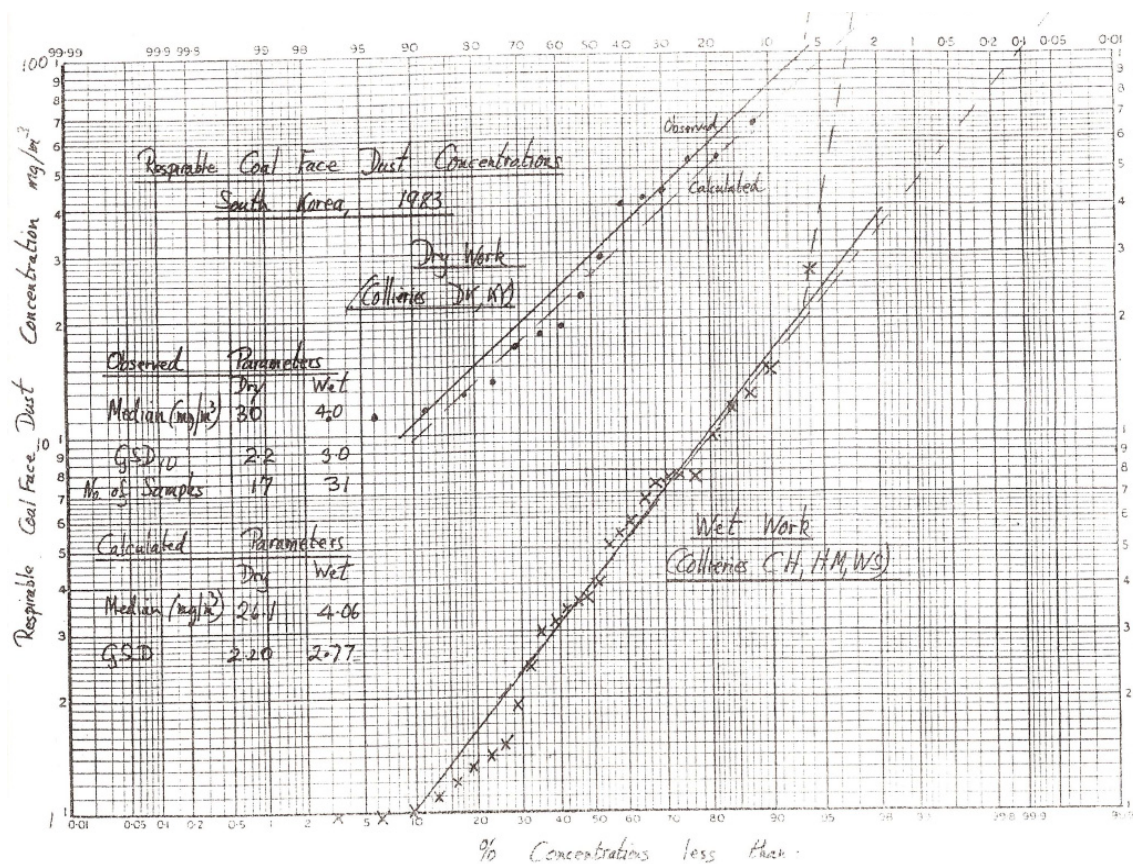 99.99 99.9 99.8 99 98 95 90 80 70 60 50 40 30 20 10 5 2 1 0.5 0.2 0.1 0.05 0.01
100
9
8
7
6
5
4
3
2
10
9
8
7
6
5
4
3
2
1
Respirable Coal Face Dust Concentration mg/m³
Observed
Calculated
Respirable Coal Face Dust Concentrations
South Korea, 1983
Dry Work
(Collieries DK, KD)
Observed Parameters
Dry Wet
Median (mg/m³) 30 4.0
GSD 2.2 3.0
No. of Samples 17 31
Calculated Parameters
Dry Wet
Median (mg/m³) 26.1 4.06
GSD 2.20 2.77
Wet Work
(Collieries CH, HM, WS)
0.01 0.05 0.1 0.2 0.5 1 2 5 10 20 30 40 50 60 70 80 90 95 98 99 99.8 99.9
% Concentrations less than